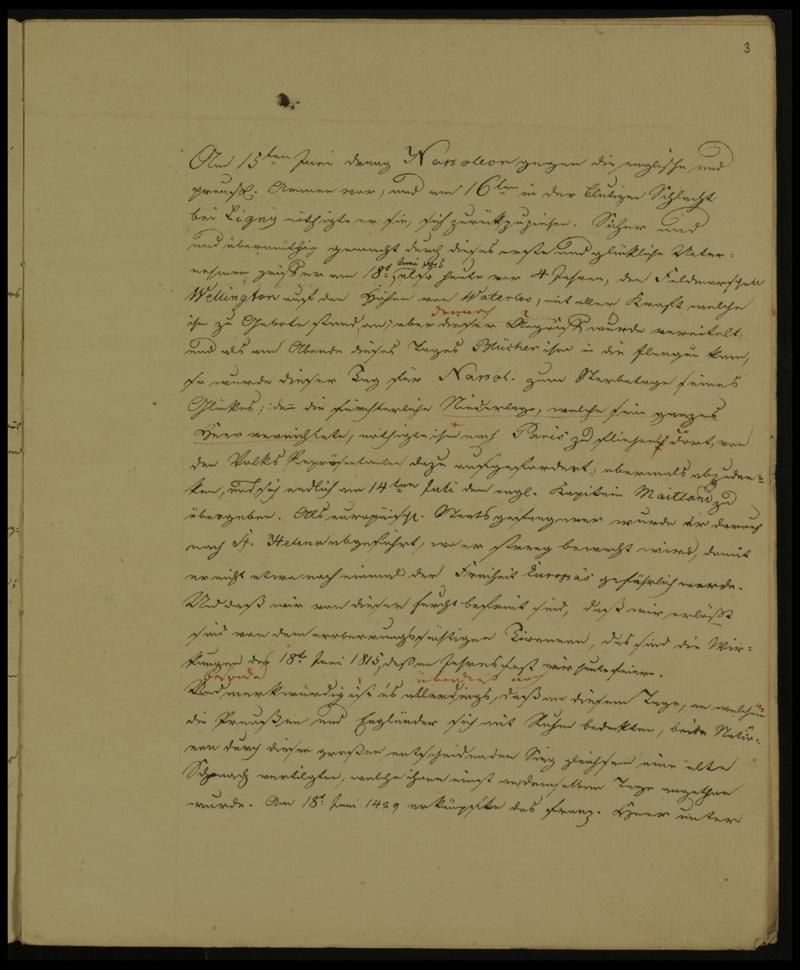 3
Am 15ten Juni drang Napoleon gegen die englische und
preuß. Armee vor, und am 16ten in der blutigen Schlacht
bei Ligny nöthigte er sie, sich zurückzuziehen. Sicher und
und übermüthig gemacht durch dieses erste und glückliche Unter-
nehmen griff er am 18t Juni 1815, also heute vor 4 Jahren, den Feldmarschall
Wellington auf den Höhen von Waterloo, mit aller Kraft welche
ihm zu Gebote stand, an, aber dennoch dieser Angriff wurde vereitelt,
und als am Abende dieses Tages Blücher ihm in die Flanquen kam,
so wurde dieser Tag für Napol. zum Sterbetage seines
Glückes; denn die fürchterliche Niederlage, welche sein ganzes
Heer vernichtete, nöthigte ihn nach Paris zu fliehen, dort, von
den Volks Repräsentanten dazu aufgefordert, abermals abzudan-
ken, und sich endlich am 14ten Juli dem engl. Kapitain Maitland zu
übergeben. Als europäisch. Staatsgefangener wurde er darauf
nach St. Helena abgeführt, wo er streng bewacht wird, damit
er nicht etwa noch einmal der Freiheit Europas gefährlich werde.
Und daß wir von dieser Furcht befreit sind, daß wir erlößt
sind von dem eroberungssüchtigen Tirannen, das sind die Wir-
kungen des 18ten Juni 1815, deßen Jahresfest wir heute feiern.
besonders überdies noch
merkwürdig ist es allerdings, daß an diesem Tage, an welchem
die Preußen und Engländer sich mit Ruhm bedekten, beide Natio-
nen durch diesen großen entscheidenden Sieg gleichsam eine alte
Schmach vertilgten, welche ihnen einst an demselben Tage angethan
wurde. Am 18t Juni 1429 erkämpfte das franz. Heer unter